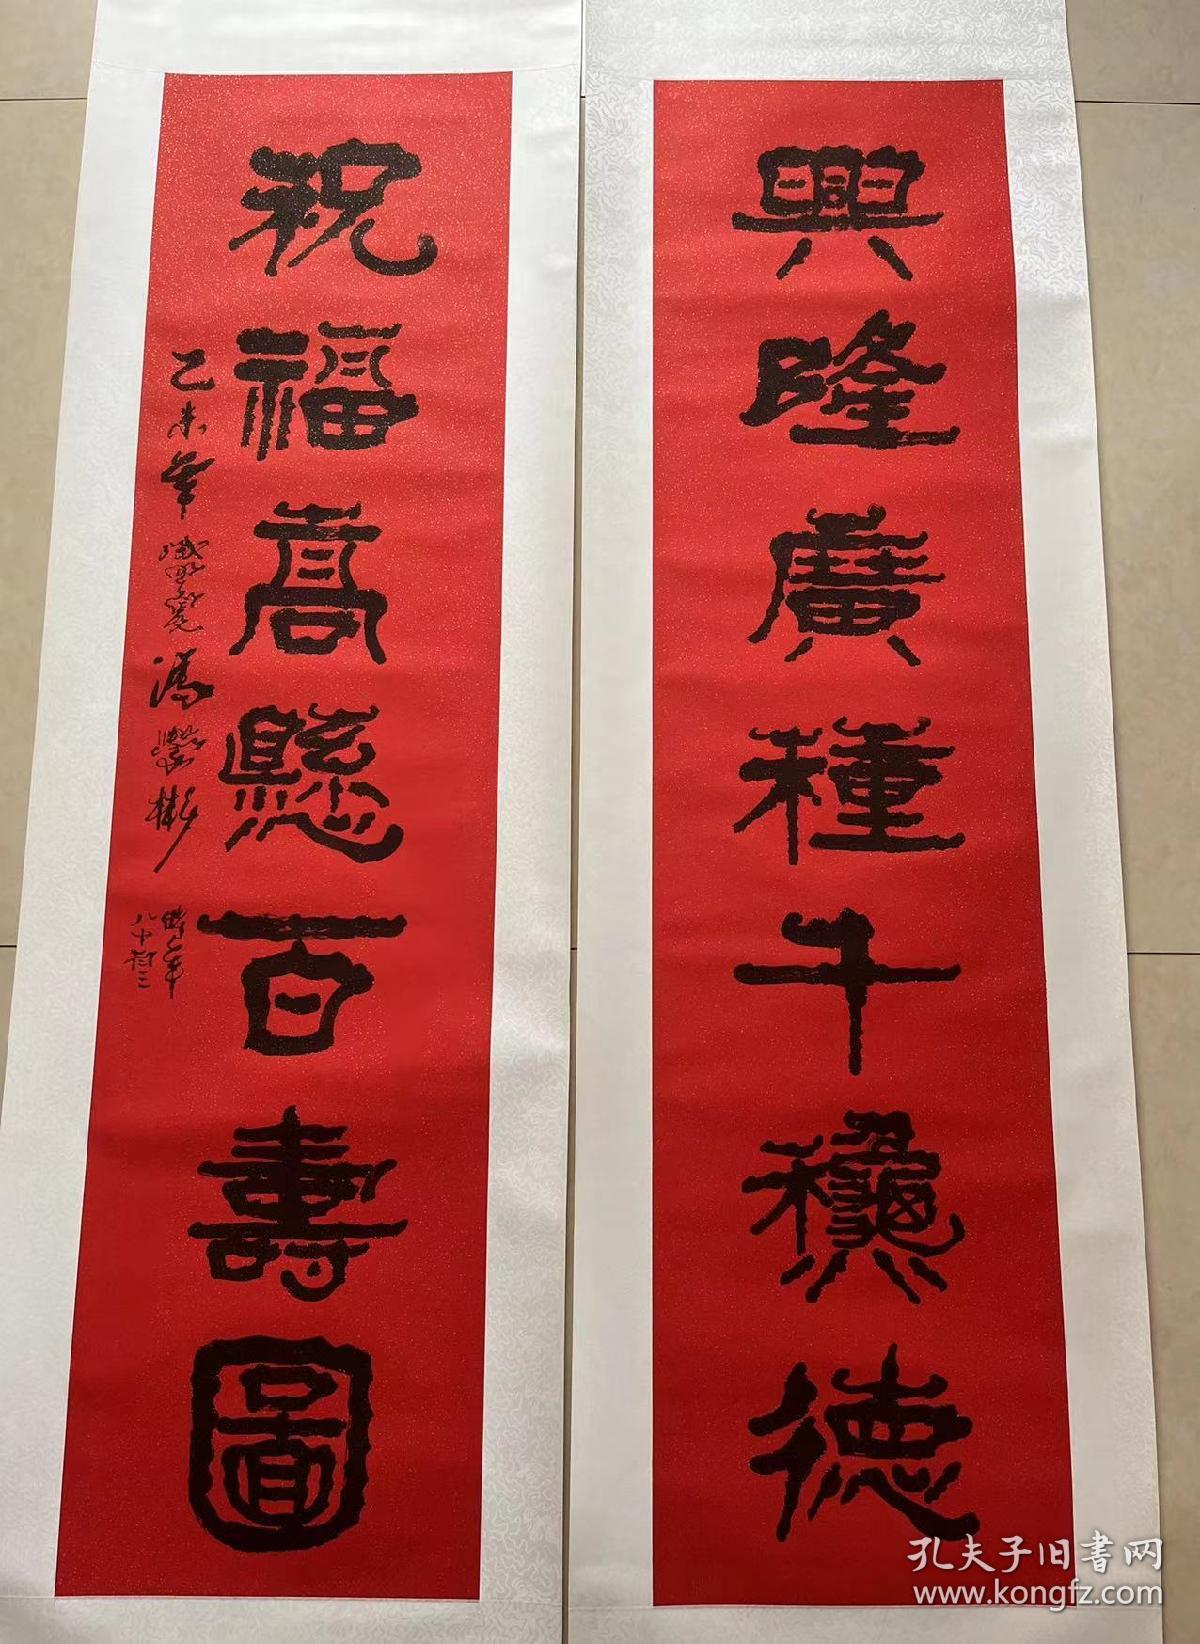 興隆廣種千龝德
祝福高懸百壽圖
乙未年 馮 彬
時年
八十有三
孔夫子旧書网
www.kongfz.com